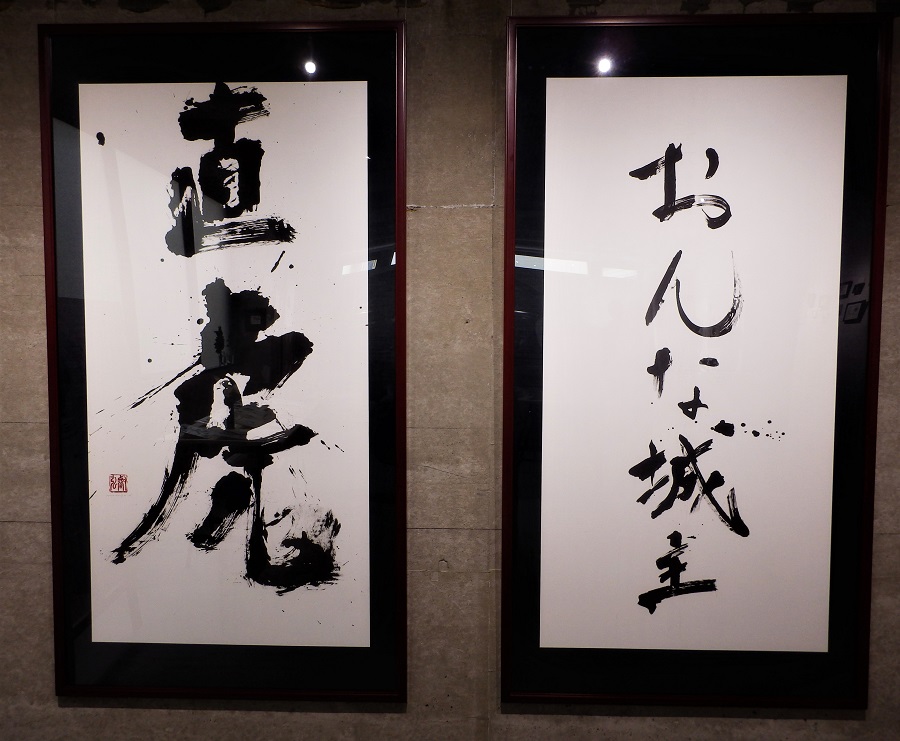 おんな城主
直虎